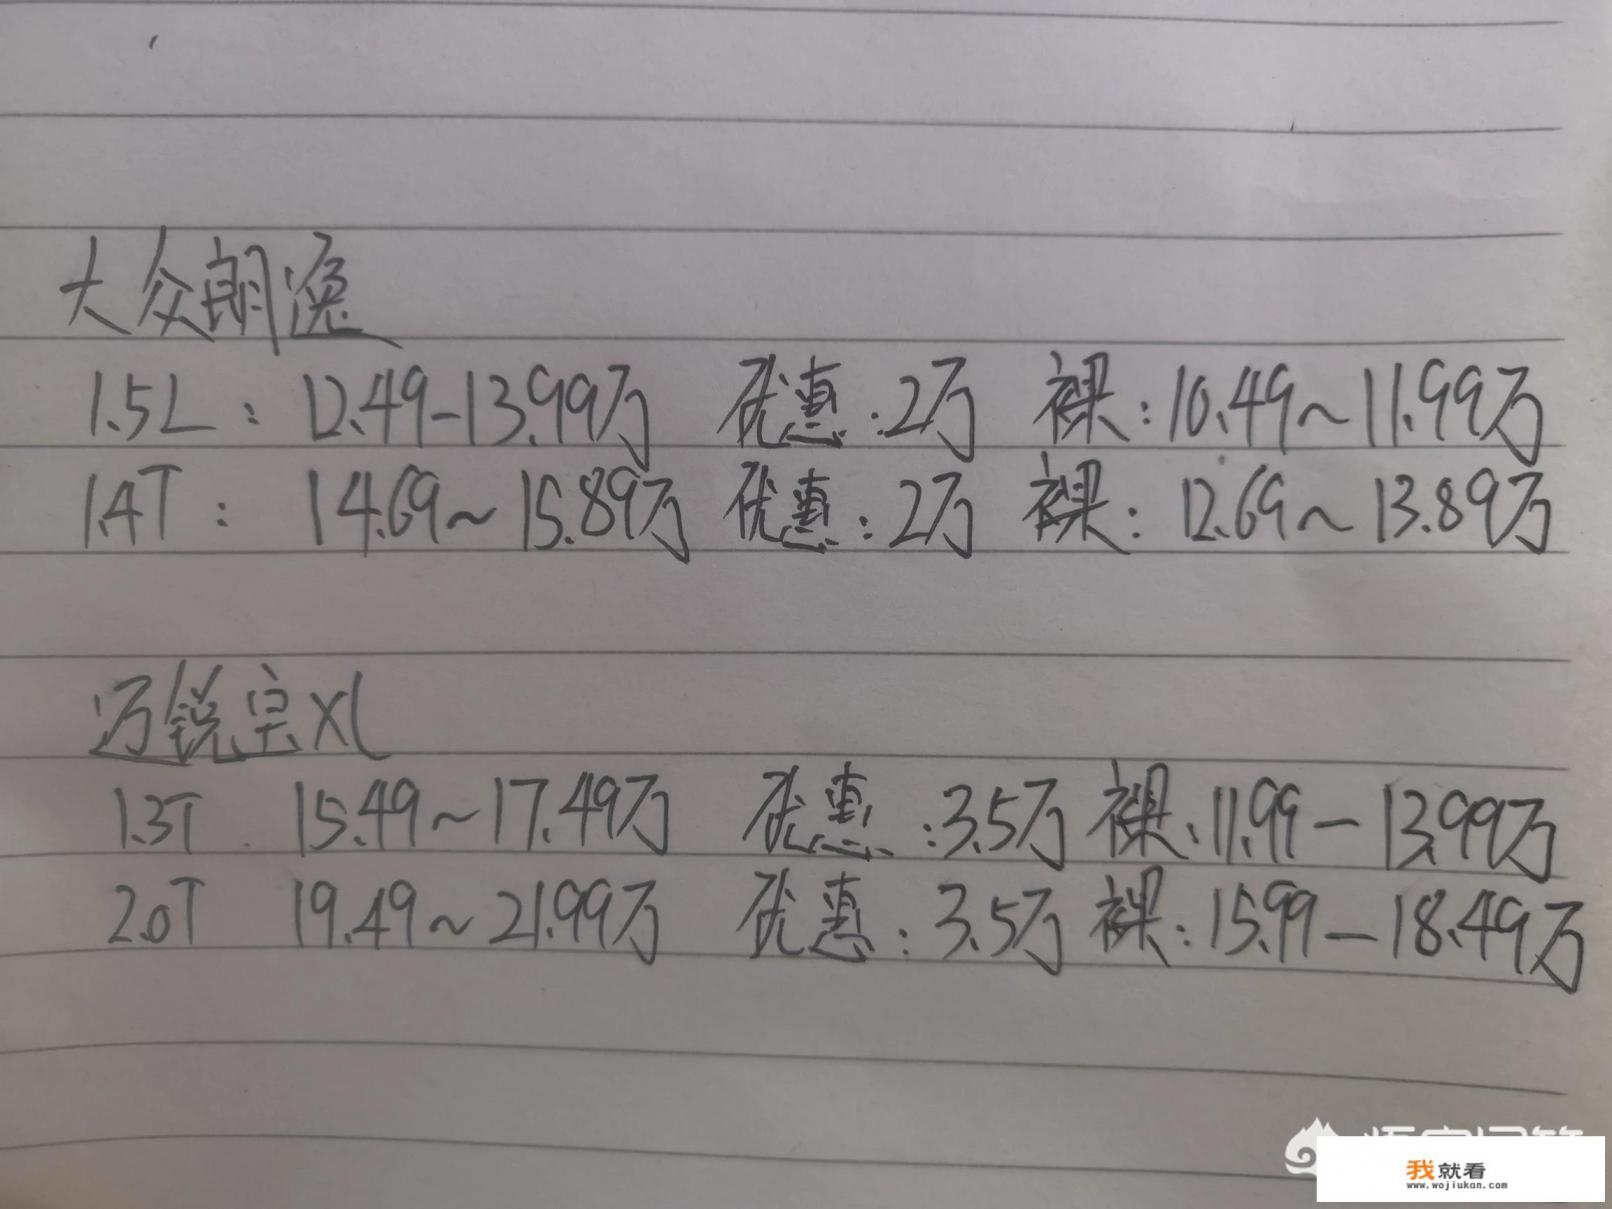 大众朗逸
1.5L：12.49-13.99万 优惠：2万 裸：10.49~11.99万
1.4T：14.69~15.89万 优惠：2万 裸：12.69~13.89万
迈锐宝XL
1.3T 15.49~17.49万 优惠：3.5万 裸：11.99-13.99万
2.0T 19.49~21.99万 优惠：3.5万 裸：15.99-18.49万
我就看
www.wojiukan.com